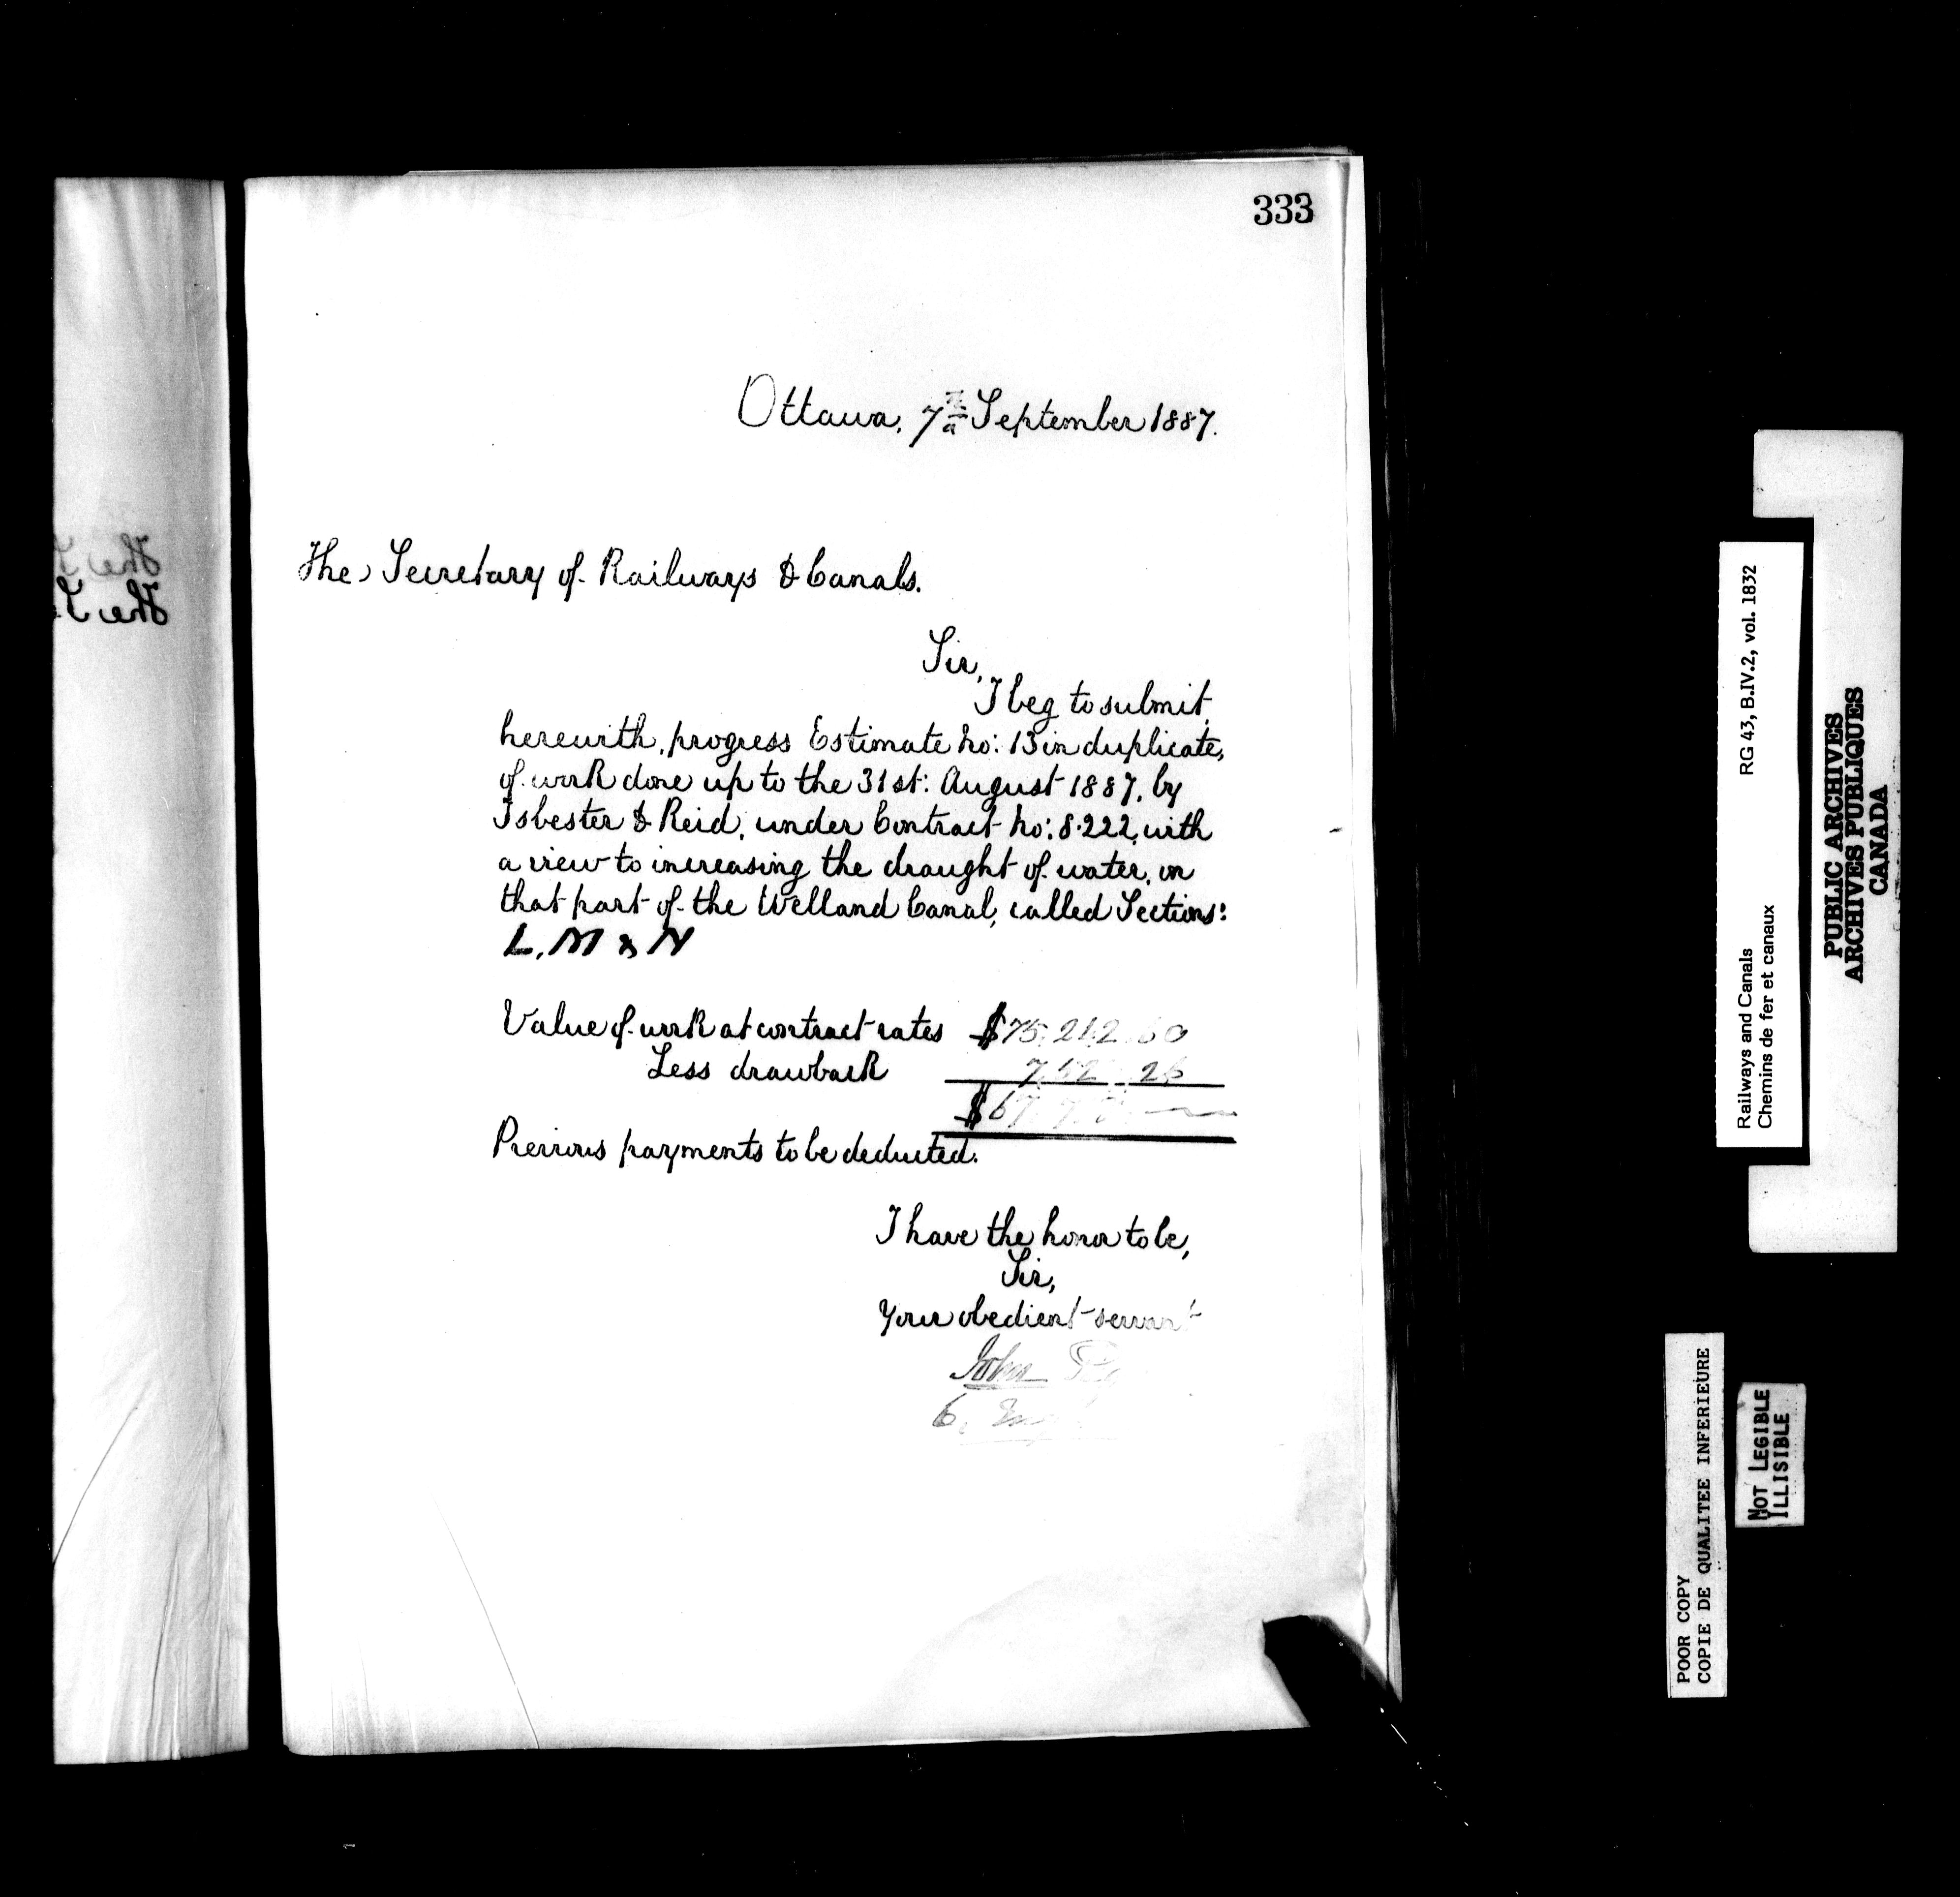 333
Ottawa, 7th September 1887.
The Secretary of Railways & Canals.
Sir,
I beg to submit
herewith, progress Estimate No: 13 in duplicate,
of work done up to the 31st: August 1887, by
Isbester & Reid, under Contract No: 8.222, with
a view to increasing the draught of water, on
that part of the Welland Canal, called Sections:
L, M & N
Value of work at contract rates $75,212.60
Less drawback
$67
Previous payments to be deducted.
I have the honor to be,
Sir,
Your obedient servant
John
The
The
Railways and Canals RG 43, B.IV.2, vol. 1832
Chemins de fer et canaux
PUBLIC ARCHIVES
ARCHIVES PUBLIQUES
CANADA
POOR COPY
COPIE DE QUALITEE INFERIEURE
NOT LEGIBLE
ILLISIBLE